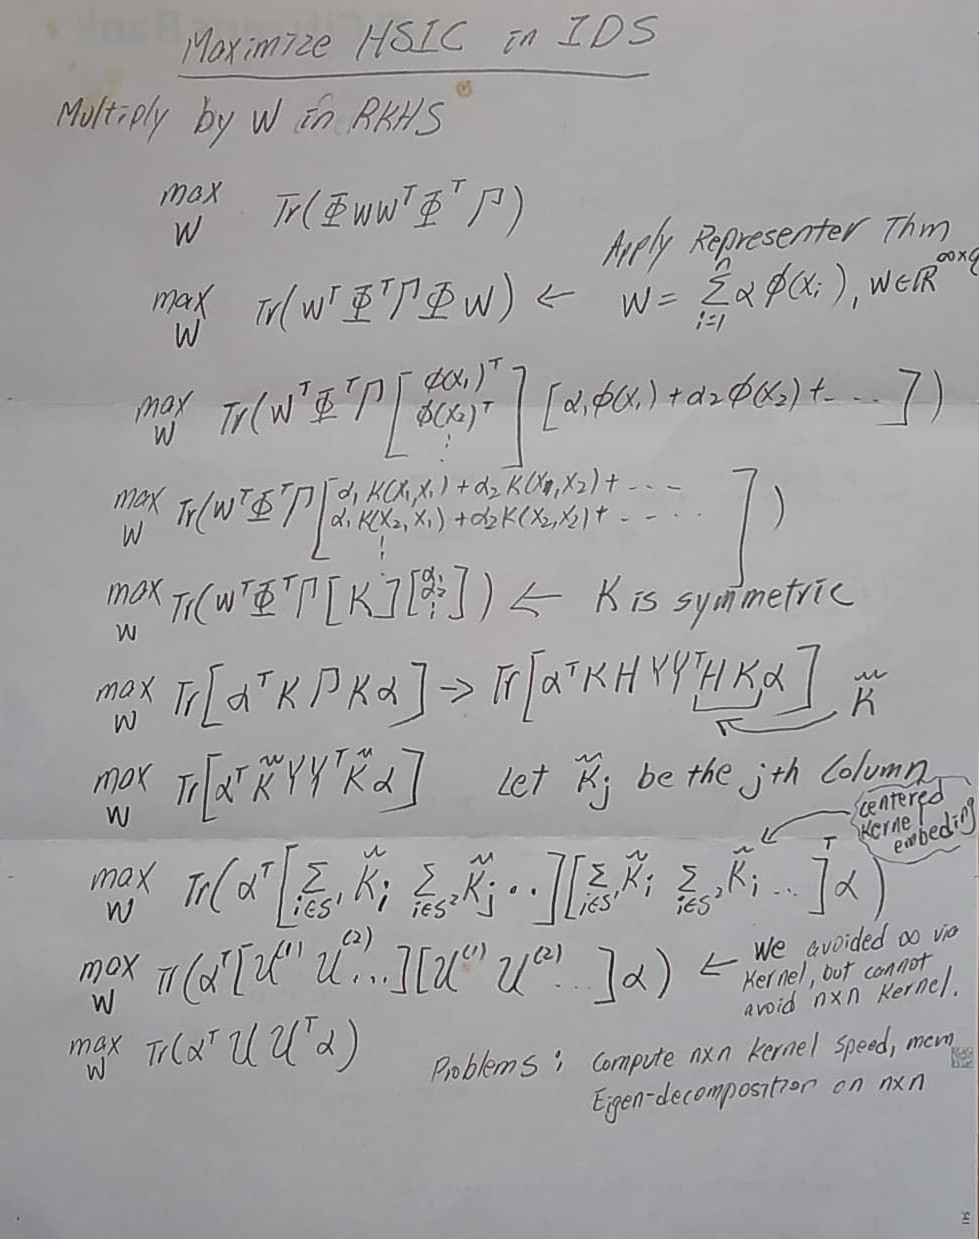 Maximize HSIC in IDS
Multiply by W in RKHS
max W Tr(ΦWWᵀΦᵀΓ)
Apply Representer Thm
max W Tr(WᵀΦᵀΓΦW) ← W = Σⁿᵢ₌₁ α ϕ(xᵢ), W∈ℝ^∞×q
max W Tr(WᵀΦᵀΓ[ϕ(x₁)ᵀ ϕ(x₂)ᵀ ⋮][α₁ϕ(x₁) + α₂ϕ(x₂) + ....])
max W Tr(WᵀΦᵀΓ[α₁K(x₁,x₁) + α₂K(x₁,x₂) + ---- α₁K(x₂,x₁) + α₂K(x₂,x₂) + ----- ⋮])
max W Tr(WᵀΦᵀΓ[K][α₁ α₂ ⋮]) ← K is symmetric
max W Tr[αᵀKΓKα] → Tr[αᵀKHYYᵀHKα] K̃
max W Tr[αᵀK̃YYᵀK̃α] Let K̃ⱼ be the jth Column
centered
kernel
embeding
max W Tr(αᵀ[Σᵢ∈S¹ K̃ᵢ Σᵢ∈S² K̃ⱼ ..][Σᵢ∈S¹ K̃ᵢ Σᵢ∈S² K̃ᵢ ...]ᵀα)
max W Tr(αᵀ[U⁽¹⁾ U⁽²⁾...][U⁽¹⁾ U⁽²⁾ ...]α) ← We avoided ∞ via
kernel, but cannot
avoid n×n kernel.
max W Tr(αᵀUUᵀα)
Problems: Compute n×n kernel speed, mem
Eigen-decomposition on n×n
541